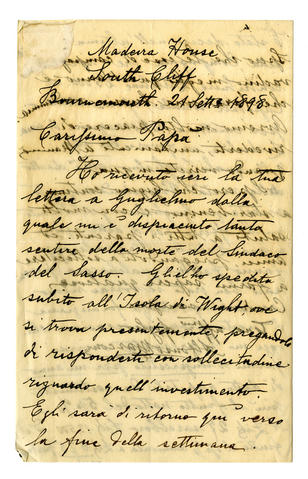 Madeira House
South Cliff
Bournemouth. 21 Sett. 1898
Carissimo Papà
Ho ricevuto ieri la tua
lettera a Guglielmo dalla
quale mi è dispiaciuto tanto
sentire della morte del Sindaco
del Sasso. Gliel'ho spedita
subito all'Isola di Wight ove
si trova presentemente pregandolo
di risponderti con sollecitudine
riguardo quell'investimento.
Egli sarà di ritorno quì verso
la fine della settimana.